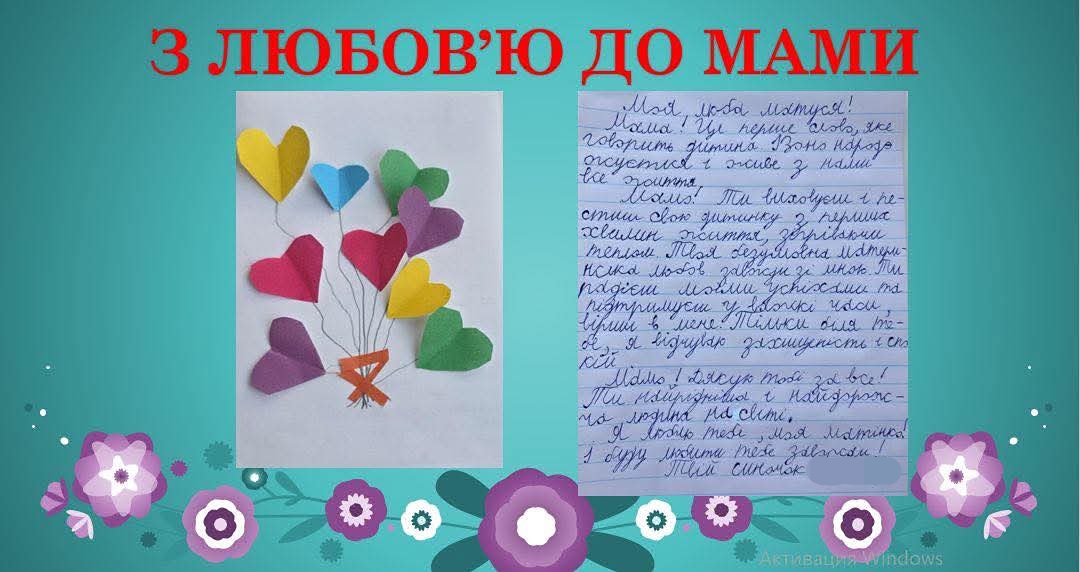 З ЛЮБОВ’Ю ДО МАМИ
Моя люба матуся!
Мама! Це перше слово, яке
говорить дитина. Воно народ-
жується і живе з нами
все життя.
Мамо! Ти виховуєш і пе-
стиш свою дитинку з перших
хвилин життя, зігріваючи
теплом. Твоя безумовна матери-
нська любов завжди зі мною. Ти
радієш моїми успіхами та
підтримуєш у важкі часи,
віриш в мене. Тільки біля те-
бе, я відчуваю захищеність і спо
кій.
Мамо! Дякую тобі за все!
Ти найрідніша і найдорож-
ча людина на світі.
Я люблю тебе, моя матінко!
І буду любити тебе завжди!
Твій синочок
Активация Windows